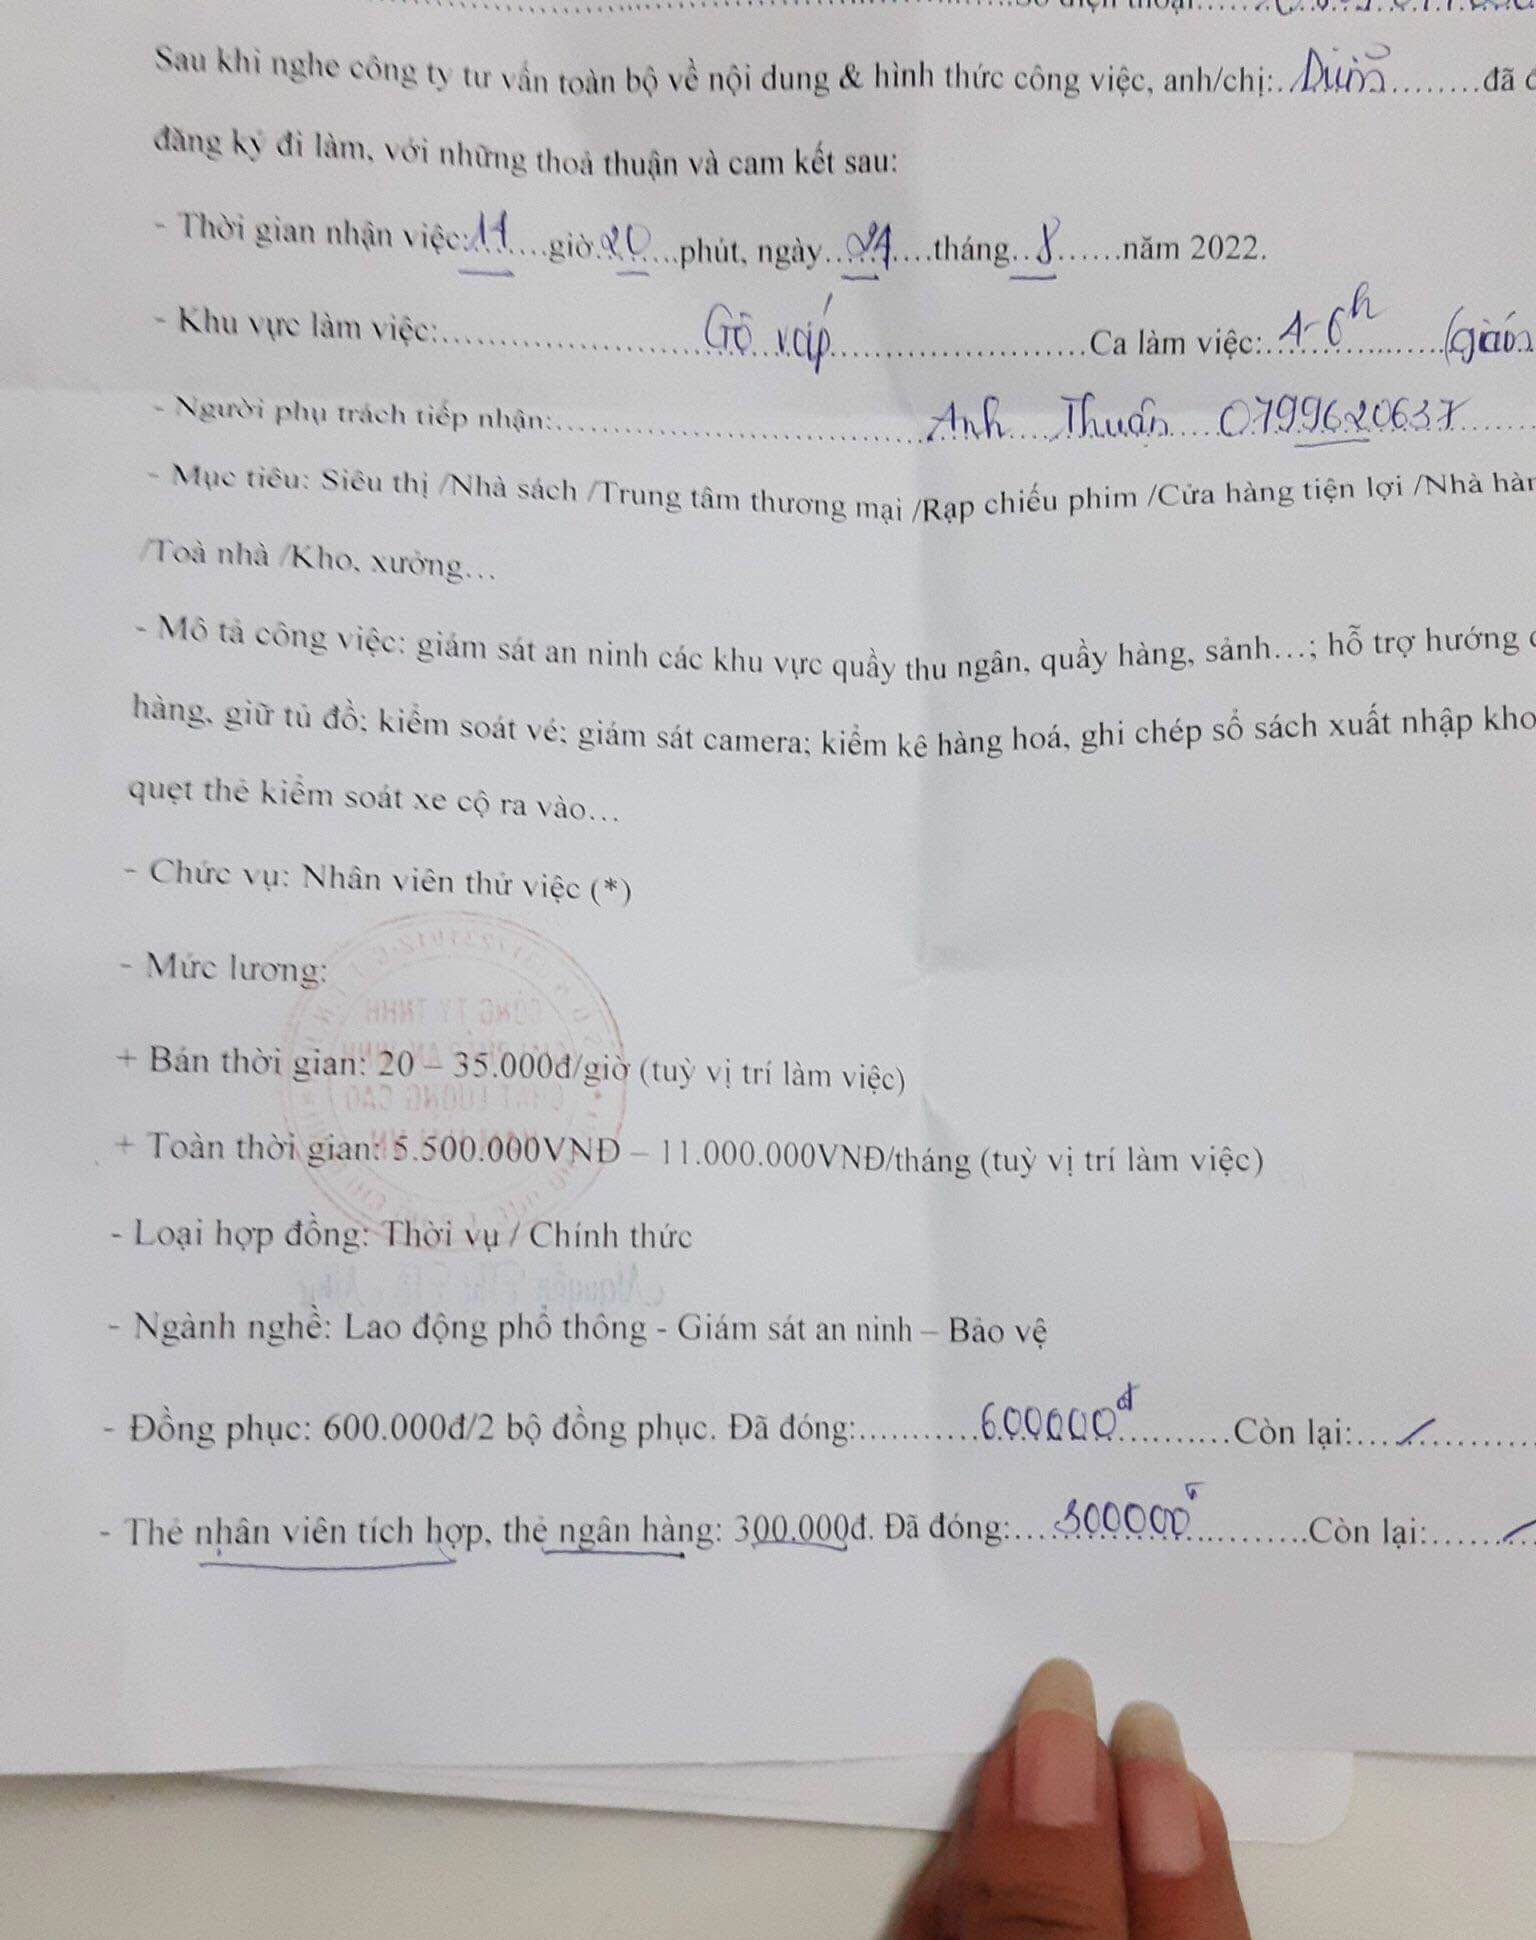 Số điện thoại:
Sau khi nghe công ty tư vấn toàn bộ về nội dung & hình thức công việc, anh/chị:..........đã
đăng ký đi làm, với những thoả thuận và cam kết sau:
- Thời gian nhận việc: 11 giờ 20 phút, ngày 24 tháng 8 năm 2022.
- Khu vực làm việc: Gò vấp Ca làm việc: 4-6h
- Người phụ trách tiếp nhận: Anh Thuấn 0799620637
- Mục tiêu: Siêu thị /Nhà sách /Trung tâm thương mại /Rạp chiếu phim /Cửa hàng tiện lợi /Nhà hàn
/Toà nhà /Kho, xưởng…
- Mô tả công việc: giám sát an ninh các khu vực quầy thu ngân, quầy hàng, sảnh…; hỗ trợ hướng
hàng, giữ tủ đồ; kiểm soát vé; giám sát camera; kiểm kê hàng hoá, ghi chép sổ sách xuất nhập kho
quẹt thẻ kiểm soát xe cộ ra vào…
- Chức vụ: Nhân viên thử việc (*)
- Mức lương:
+ Bán thời gian: 20 – 35.000đ/giờ (tuỳ vị trí làm việc)
+ Toàn thời gian: 5.500.000VNĐ – 11.000.000VNĐ/tháng (tuỳ vị trí làm việc)
- Loại hợp đồng: Thời vụ / Chính thức
- Ngành nghề: Lao động phổ thông - Giám sát an ninh – Bảo vệ
- Đồng phục: 600.000đ/2 bộ đồng phục. Đã đóng: 600000đ Còn lại: /
- Thẻ nhân viên tích hợp, thẻ ngân hàng: 300.000đ. Đã đóng: 300000đ Còn lại: /